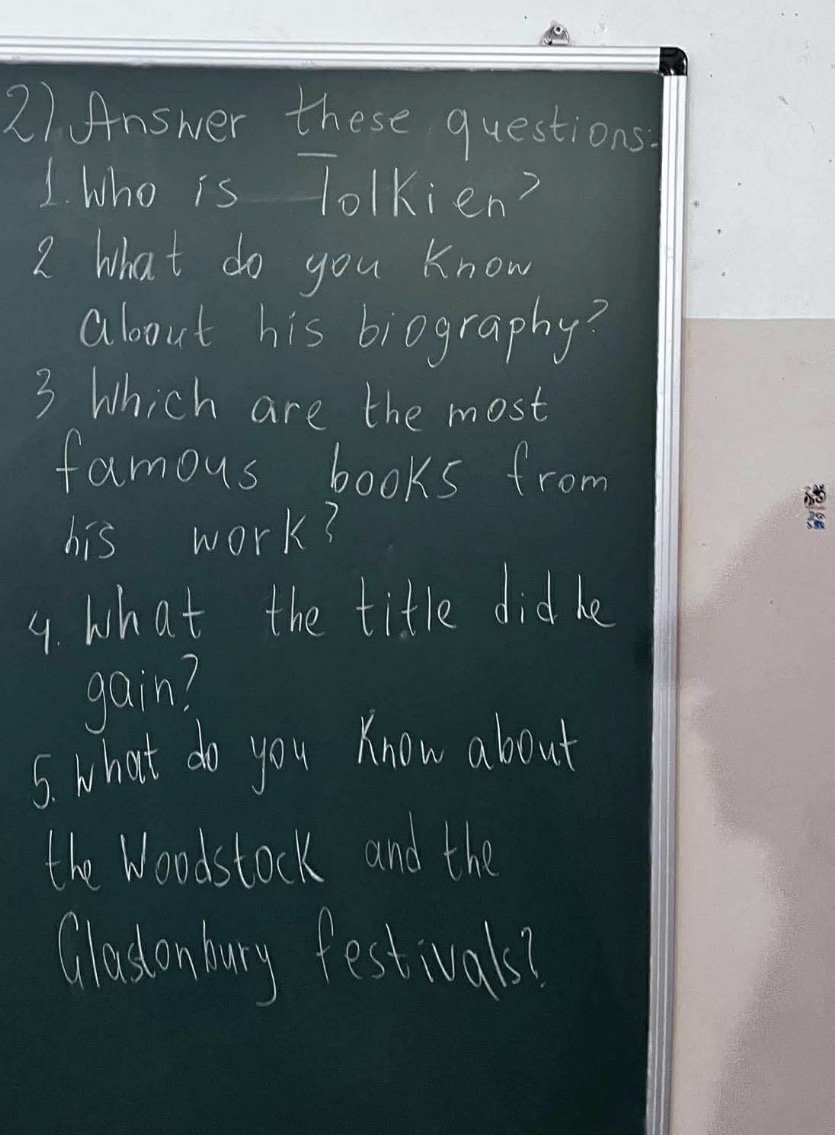 2) Answer these questions:
1. Who is Tolkien?
2 What do you know
about his biography?
3 Which are the most
famous books from
his work?
4. What the title did he
gain?
5. What do you know about
the Woodstock and the
Glastonbury festivals?